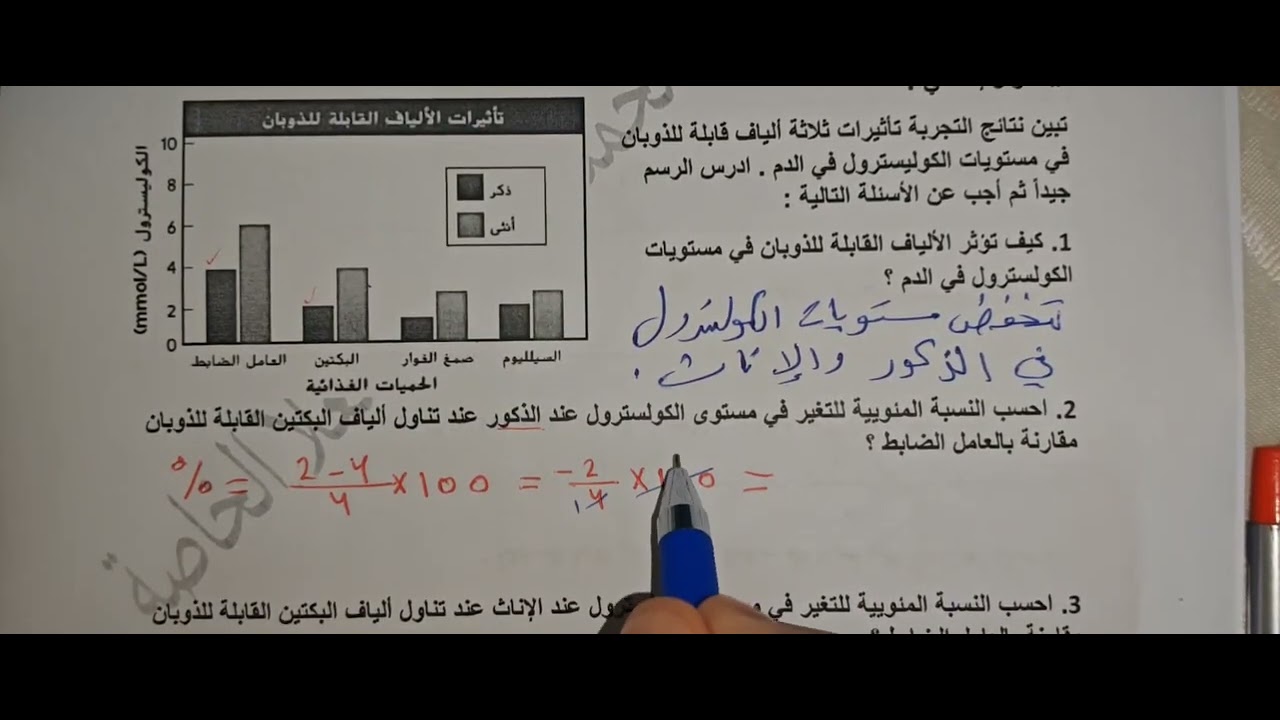 تأثيرات الألياف القابلة للذوبان
الكوليسترول (mmol/L)
10
8
6
4
2
0
ذكر
أنثى
العامل الضابط
البكتين
صمغ الغوار
السيلليوم
الحميات الغذائية
تبين نتائج التجربة تأثيرات ثلاثة ألياف قابلة للذوبان
في مستويات الكوليسترول في الدم . ادرس الرسم
جيداً ثم أجب عن الأسئلة التالية :
1. كيف تؤثر الألياف القابلة للذوبان في مستويات
الكولسترول في الدم ؟
تنخفض مستويات الكولسترول
في الذكور والإناث .
2. احسب النسبة المئويية للتغير في مستوى الكولسترول عند الذكور عند تناول ألياف البكتين القابلة للذوبان
مقارنة بالعامل الضابط ؟
% = 2-4/4 × 100 = -2/4 × 100 =
1
3. احسب النسبة المئويية للتغير في عند الإناث عند تناول ألياف البكتين القابلة للذوبان
الخاصة